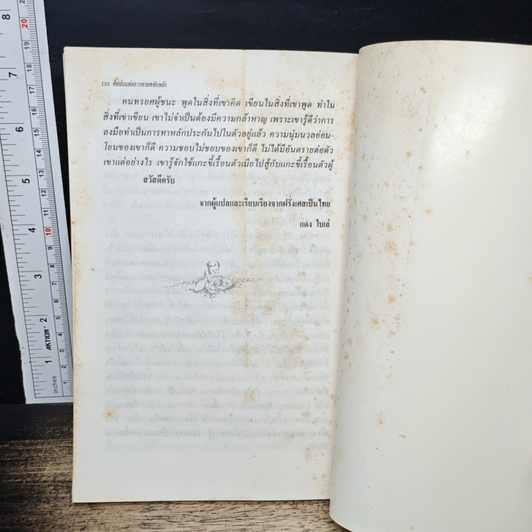 192 ศิลปะแห่งการทรยศหักหลัง
คนทรยศผู้ชนะ พูดในสิ่งที่เขาคิด เขียนในสิ่งที่เขาพูด ทำใน
สิ่งที่เขาเขียน เขาไม่จำเป็นต้องมีความกล้าหาญ เพราะเขารู้ดีว่าการ
ลงมือทำเป็นการหาหลักประกันไปในตัวอยู่แล้ว ความนุ่มนวลอ่อน-
โยนของเขาก็ดี ความชอบไม่ชอบของเขาก็ดี ไม่ได้มีอันตรายต่อตัว
เขาแต่อย่างไร เขารู้จักใช้แกะขี้เรื้อนตัวเมียไปสู้กับแกะขี้เรื้อนตัวผู้
สวัสดีครับ
จากผู้แปลและเรียบเรียงจากฝรั่งเศสเป็นไทย
แดง ใบเล่
inches
1 2 3 4 5 6 7 8
10
20
AKTION